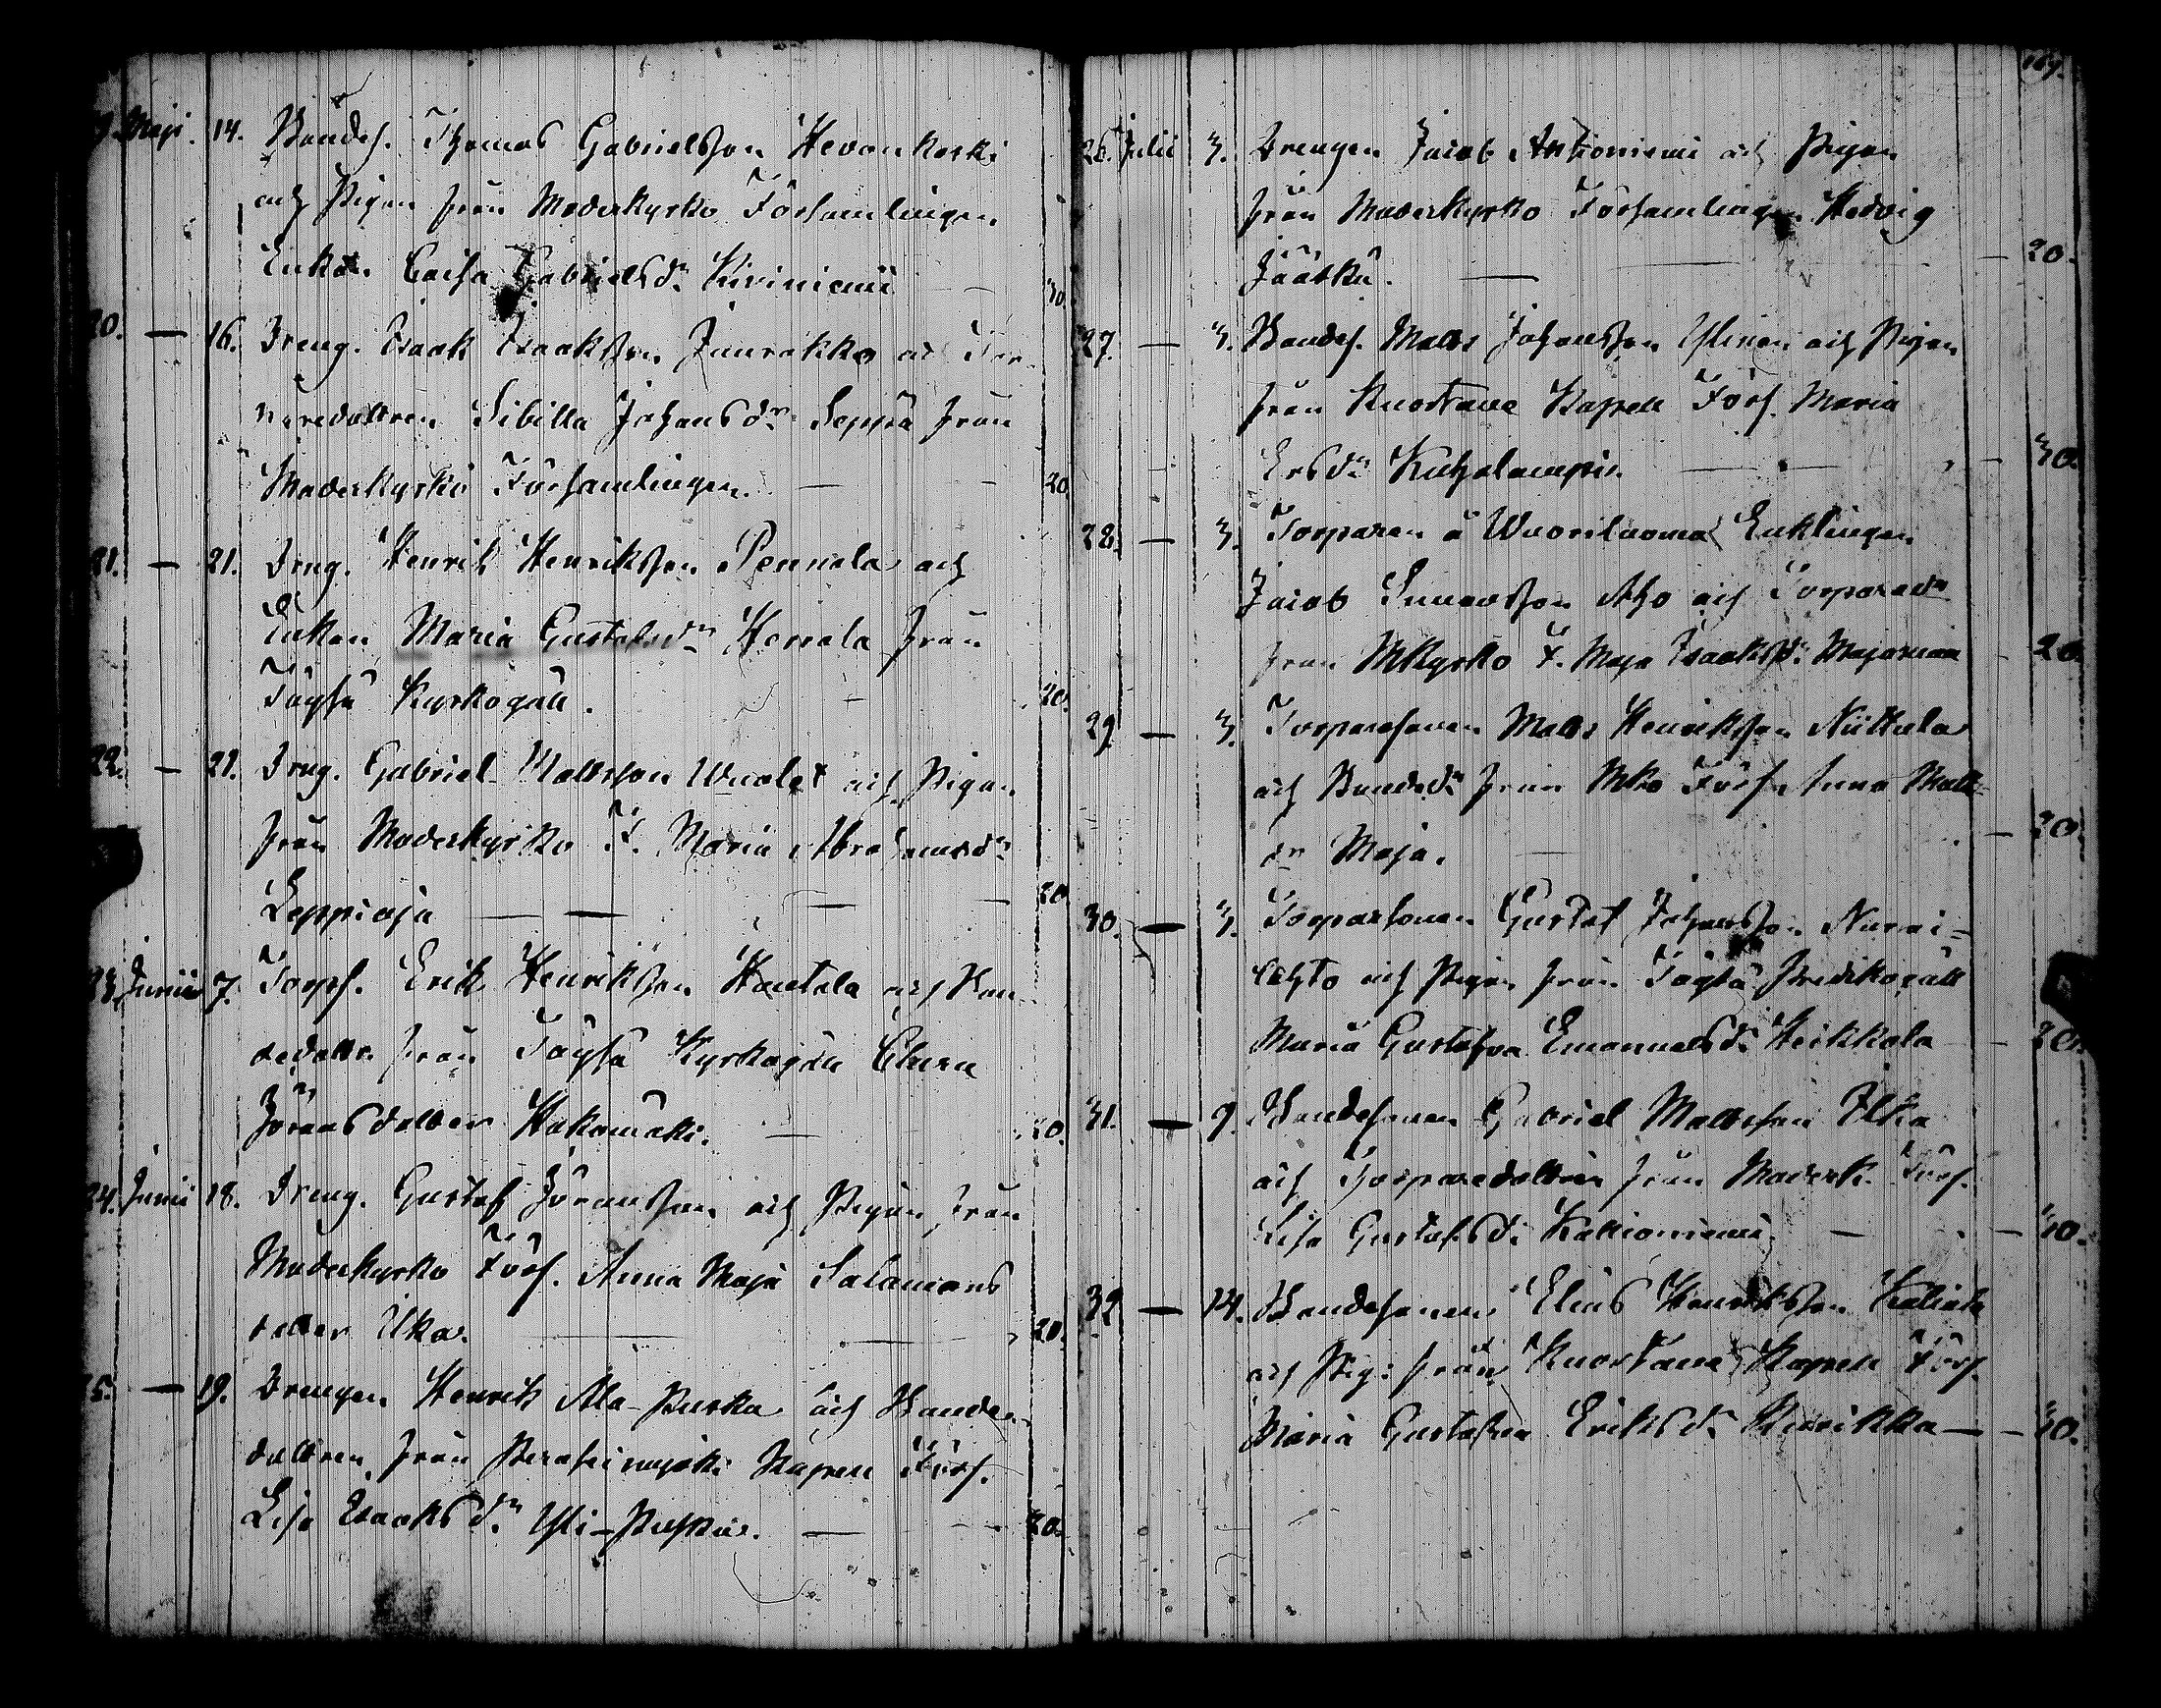 19. Maji. 14. Bondes. Thomas Gabrielsson Hevonkoski
och Pigan från Moderkyrko Församlingen
Enkan Caisa Gabrielsdr Kiviniemi — 30.
20. — 16. Dreng. Isaak Isaaksson och Tor-
paredottren Sibilla Johansdr Seppä från
Moderkyrko Församlingen. — 20.
21. — 21. Drng. Henrik Henriksson Pennala och
Enkan Maria Gustafsdr Herrala från
Töysä Kyrkogäll. — 20.
22. — 21. Drng. Gabriel Mattsson och Pigan
från Moderkyrko F. Maria Abrahamsdr
Leppioja — — — 20.
23. Junii 7. Torps. Erik Henriksson Hautala och Bon-
dedottr. från Töysä Kyrkogäll
Göransdotter Hakomäki. — 20.
24. Junii 18. Dreng. Gustaf Göransson och Pigan från
Moderkyrko Förs. Anna Maja Salamons
dotter Ilka. — — 20.
25. — 19. Drengen Henrik Ala-Puska och Bonde-
dottren från Peraseinäjoki Kapell Förs.
Lisa Isaaksdr Yli-Puska. — 20.
26. Julii 3. Drengen Jacob Anttoniemi och Pigan
från Moderkyrko Församlingen Hedvig
Jääskä. — — 20.
27. — 3. Bondes. Matts Johansson Ylinen och Pigan
från Kuortane Kapell Förs. Maria
Ersdr Kuhalampi. — — 30.
28. — 3. Torparen å Wuoriluoma Enklingen
Jacob Simonsson Aho och Torparedr
från MKyrko F. Maja Isaaksdr — 20.
29. — 3. Torparesonen Matts Henriksson Niittula
och Bondedr från Mko Förs. Anna Matts-
dr Maja. — — 20.
30. — 3. Torparsonen Gustaf Johansson Nurmi-
Lehto och Pigan från Töysä Predikogäll
Maria Gustafva Emanuelsdr Heikkala — 20.
31. — 9. Bondesonen Gabriel Mattsson Ilka
och Torparedottren från Moderk. Förs.
Lisa Gustafsdr Kallioniemi. — 30.
32 — 14. Bondesonen Elias Henriksson
och Pig: från Kuortane Kapell Förs.
Maria Gustafva Eriksdr — 30.